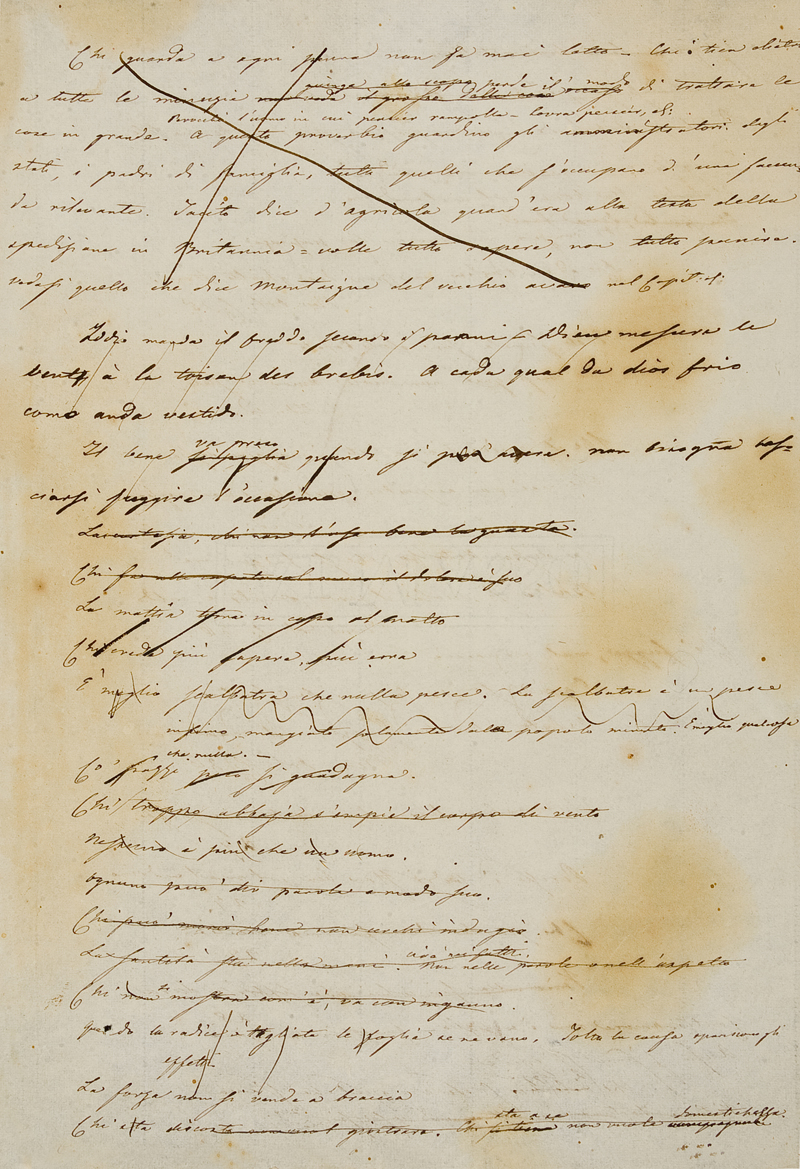 Chi guarda a ogni penna non fa mai letto = Chi tien dietro
giunga allo scopo perde il modo
a tutte le minuzie di trattare le
cose in grande. A questo proverbio guardino gli amministratori degli
stati, i padri di famiglia, tutti quelli che s'occupano d'una faccen=
da rilevante. Tacito dice d'Agricola quand'era alla testa della
spedizione in Britannia = volle tutto sapere, non tutto punire.
vedasi quello che dice Montaigne del vecchio avaro nel Capit.
Iddio manda il freddo secondo i panni = Dieu mesure le
vent à la toison des brebis. A cada qual da dios frio
como anda vestido.
va preso
Il bene si piglia quando si può avere. non bisogna las=
ciarsi fuggire l'occasione.
La cortesia, chi non l'usa bene la guasta.
Chi fa alle capate col muro il dolore è suo
La mattia torna in capo al matto
Chi crede più sapere, più erra
È meglio scalbatra che nulla pesce. La scalbatra è un pesce
infimo, mangiato solamente dalla popolo minuto. È meglio qualcosa
che nulla. =
Co' pazzi poco si guadagna.
Chi troppo abbaja s'empie il corpo di vento
Nessuno è più che un uomo.
Ognuno può dir parole a modo suo.
Chi può morir bene non cerchi indugio.
La santità sta nelle mani. cioè ne' fatti. Non nelle parole o nell'aspetto
Chi non si mostra com'è, va con inganno.
Quando la radice è tagliata le foglie se ne vano. Tolta la causa spariscono gli
effetti.
La forza non si vende a braccia
sta a sé domestichezza
Chi sta discosto non vuol giostrare. Chi si tiene non vuole